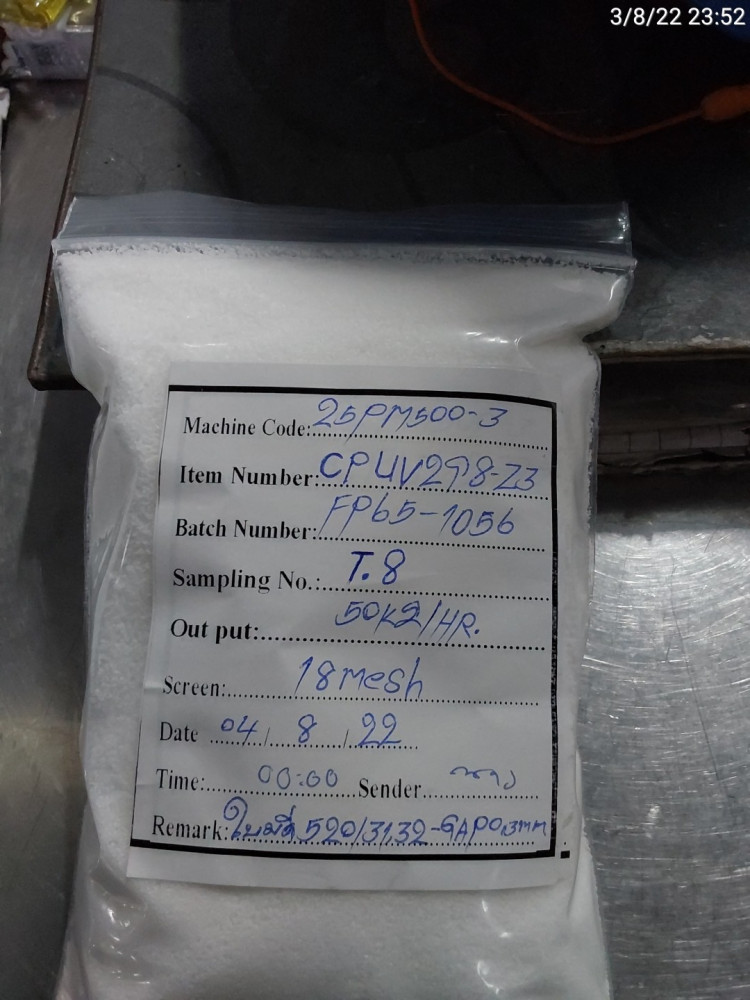 3/8/22 23:52
Machine Code: 25PM500-3
Item Number: CPUV298-Z3
Batch Number: FP65-1056
Sampling No.: T.8
Out put: 50Kg/HR.
Screen: 18mesh
Date 04 / 8 / 22
Time: 00:00 Sender
Remark: ใบมีด 520/3132-GAP0.3mm